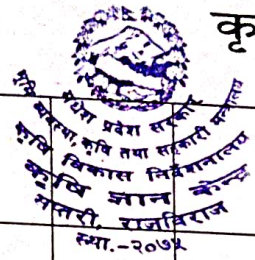 कृ
मधेश प्रदेश सरकार
भूमि व्यवस्था, कृषि तथा सहकारी मन्त्रालय
कृषि विकास निर्देशनालय
कृषि ज्ञान केन्द्र
सप्तरी, राजविराज
स्था.-२०७५